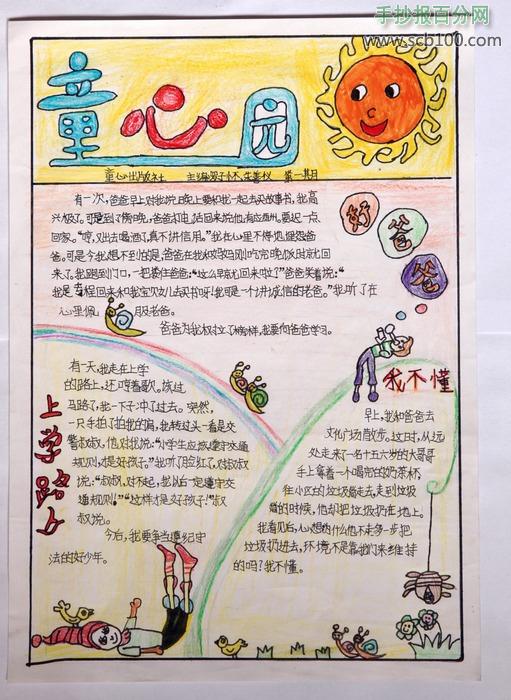 手抄报百分网
www.scb100.com
童心园
童心出版社 主编 第一期
好爸爸
有一次,爸爸早上对我说:晚上要和我一起去买故事书,我高
兴极了。可是到了傍晚,爸爸打电话回来说他有应酬,要晚一点
回家。"哼,又出去喝酒了,真不讲信用。"我在心里不停地埋怨爸
爸。可是令我想不到的是,爸爸在我和妈妈刚吃完晚饭时就回
来了。我跑到门口,一把搂住爸爸:"这么早就回来啦?"爸爸笑着说:"
我是专程回来和我宝贝女儿去买书呀!我可是一个讲诚信的老爸。"我听了在
心里佩服老爸。
爸爸为我树立了榜样,我要向爸爸学习。
上学路上
有一天,我走在上学
的路上,还哼着歌。该过
马路了,我一下子冲了过去。突然,
一只手拍了拍我的肩,我转过头一看是交
警叔叔,他对我说:"小学生应该遵守交通
规则,才是好孩子。"我听了脸红了,对叔叔
说:"叔叔,对不起,我以后一定遵守交
通规则!""这样才是好孩子!"叔
叔说。
今后,我更争当遵纪守
法的好少年。
我不懂
早上,我和爸爸去
文化广场散步。这时,从远
处走来了一名十五六岁的大哥哥
手上拿着一个喝完的奶茶杯,
往小区的垃圾箱走去,走到垃圾
箱的时候,他却把垃圾扔在地上。
我看见后,心想:为什么他不走多一步把
垃圾扔进去,环境不是靠我们来维持
的吗?我不懂。